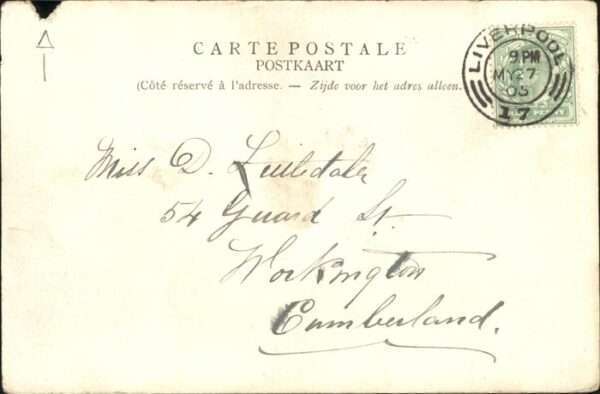 CARTE POSTALE
POSTKAART
(Côté réservé à l'adresse. — Zijde voor het adres alleen.
LIVERPOOL
9 PM
MY 27
03
17
Miss D.
54 Guard St.
Workington
Cumberland.